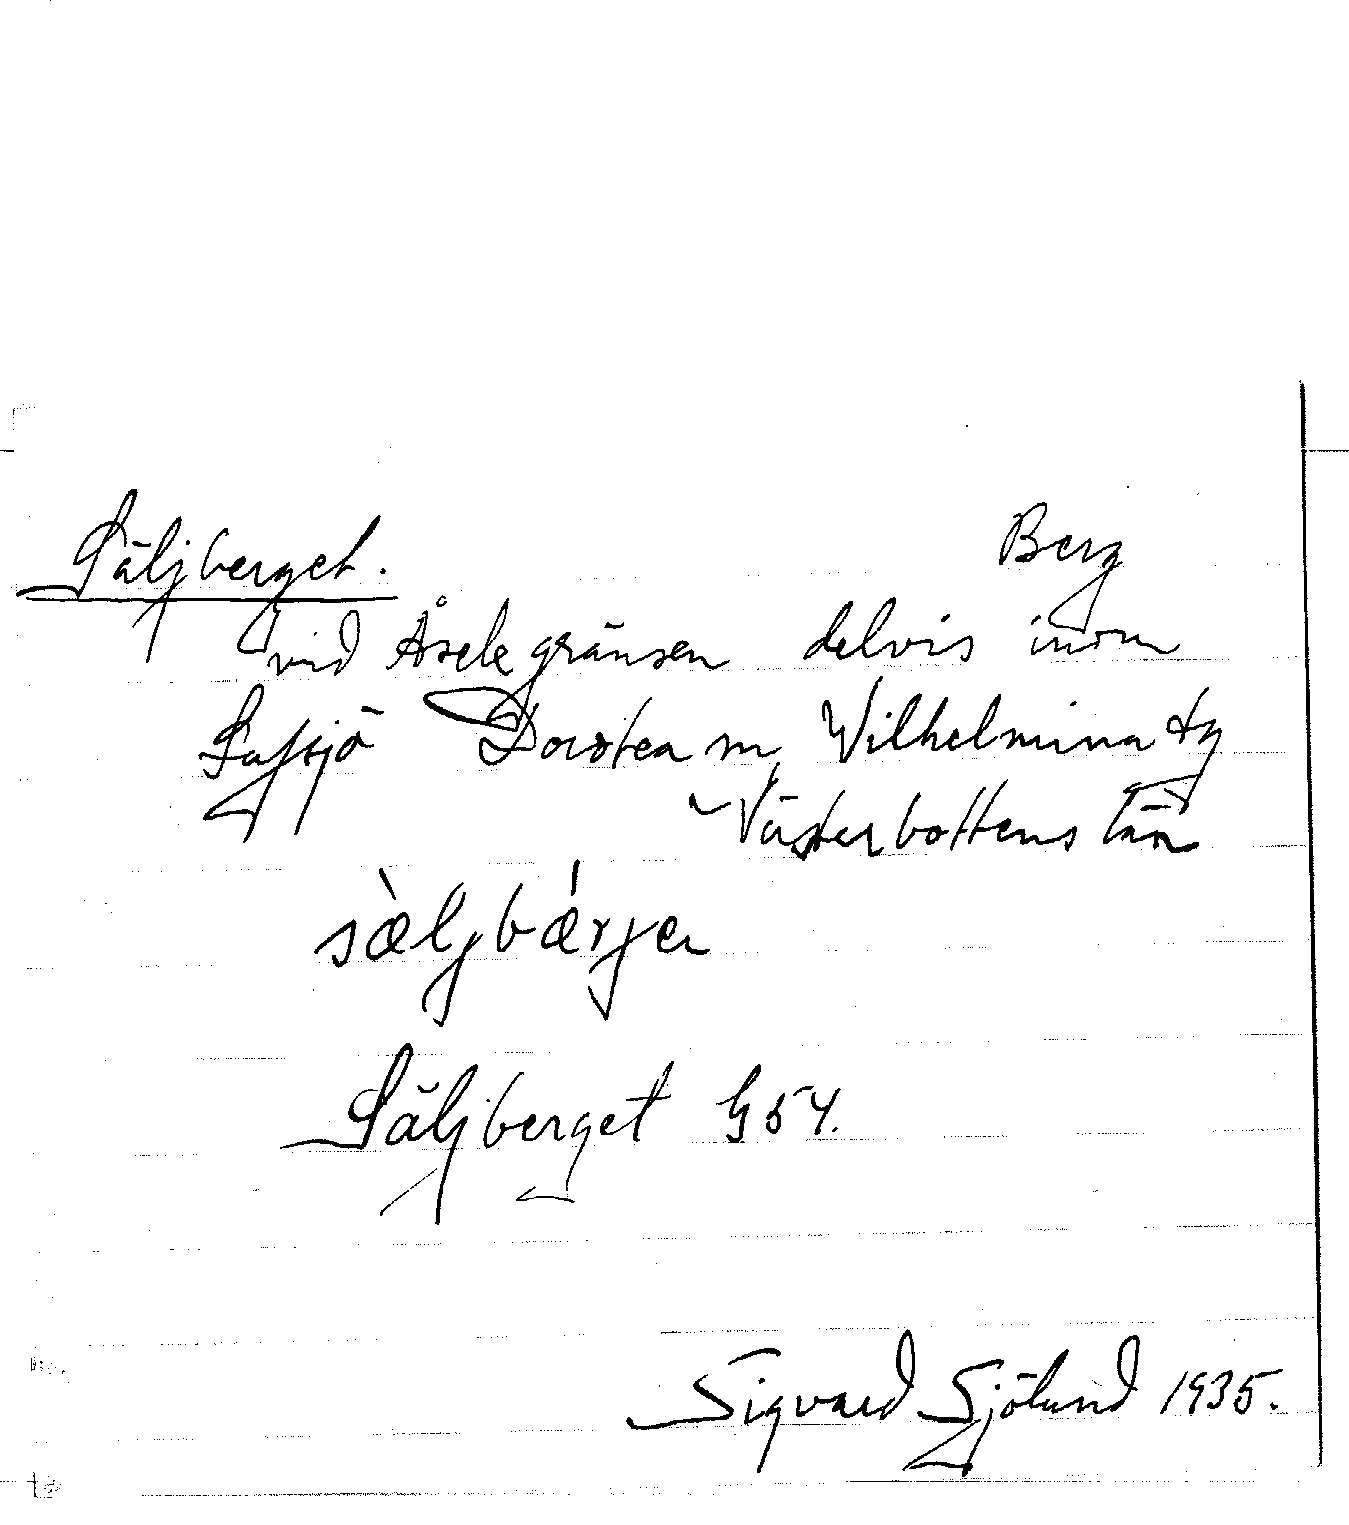 Säljberget. Berg
vid Åselegränsen delvis inom
Lafsjö Dorotea sn, Wilhelmina tg
Västerbottens län
sæ̀ljbǽrjɘ
Säljberget G5Y.
Sigvard Sjölund 1935.